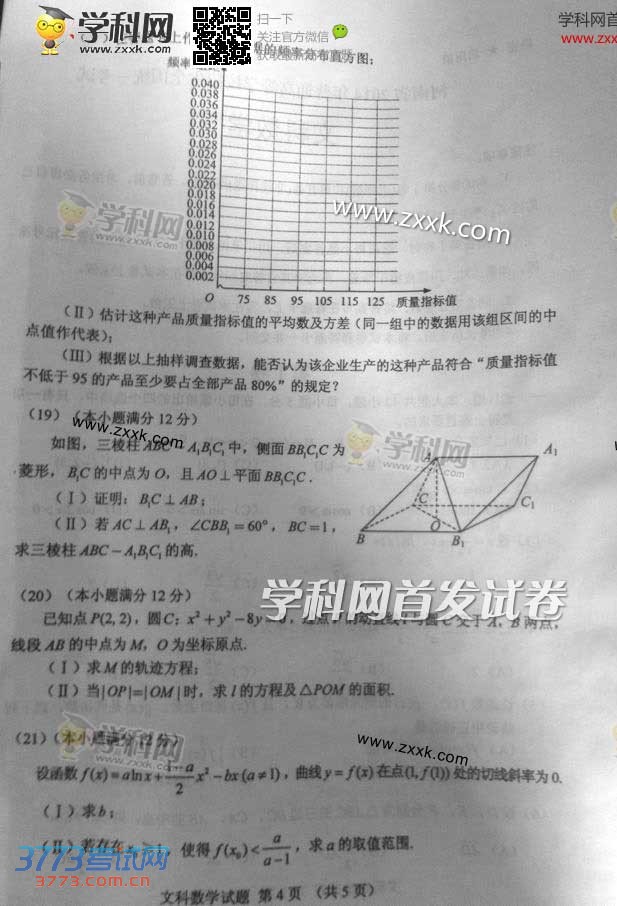 学科网
www.zxxk.com
扫一下
关注官方微信
学科网首
www.zxxk
的频率分布直方图：
频率
0.040
0.038
0.036
0.034
0.032
0.030
0.028
0.026
0.024
0.022
0.020
0.018
0.016
0.014
0.012
0.010
0.008
0.006
0.004
0.002
O 75 85 95 105 115 125 质量指标值
学科网
www.zxxk.com
www.zxxk.com
（Ⅱ）估计这种产品质量指标值的平均数及方差（同一组中的数据用该组区间的中
点值作代表）；
（Ⅲ）根据以上抽样调查数据，能否认为该企业生产的这种产品符合“质量指标值
不低于 95 的产品至少要占全部产品 80%”的规定？
（19）（本小题满分 12 分）
www.zxxk.com
如图，三棱柱 ABC－A₁B₁C₁ 中，侧面 BB₁C₁C 为
菱形，B₁C 的中点为 O，且 AO⊥平面 BB₁C₁C．
（Ⅰ）证明：B₁C⊥AB；
（Ⅱ）若 AC⊥AB₁，∠CBB₁＝60°，BC＝1，
求三棱柱 ABC－A₁B₁C₁ 的高.
学科网
www.zxxk.com
A A₁
C C₁
O
B B₁
（20）（本小题满分 12 分）
学科网首发试卷
已知点 P(2, 2)，圆 C：x²＋y²－8y 交于 A，B 两点，
线段 AB 的中点为 M，O 为坐标原点.
（Ⅰ）求 M 的轨迹方程；
（Ⅱ）当|OP|=|OM|时，求 l 的方程及△POM 的面积.
学科网
www.zxxk.com
www.zxxk.com
（21）（本小题满分 12 分）
设函数 f(x)=alnx+(1−a)/2 x²−bx(a≠1)，曲线 y=f(x) 在点(1, f(1)) 处的切线斜率为 0.
（Ⅰ）求 b；
（Ⅱ）若存在 使得 f(x₀)<a/(a−1)，求 a 的取值范围.
www.zxxk.com
3773考试网
3773.com.cn
文科数学试题 第 4 页 （共 5 页）